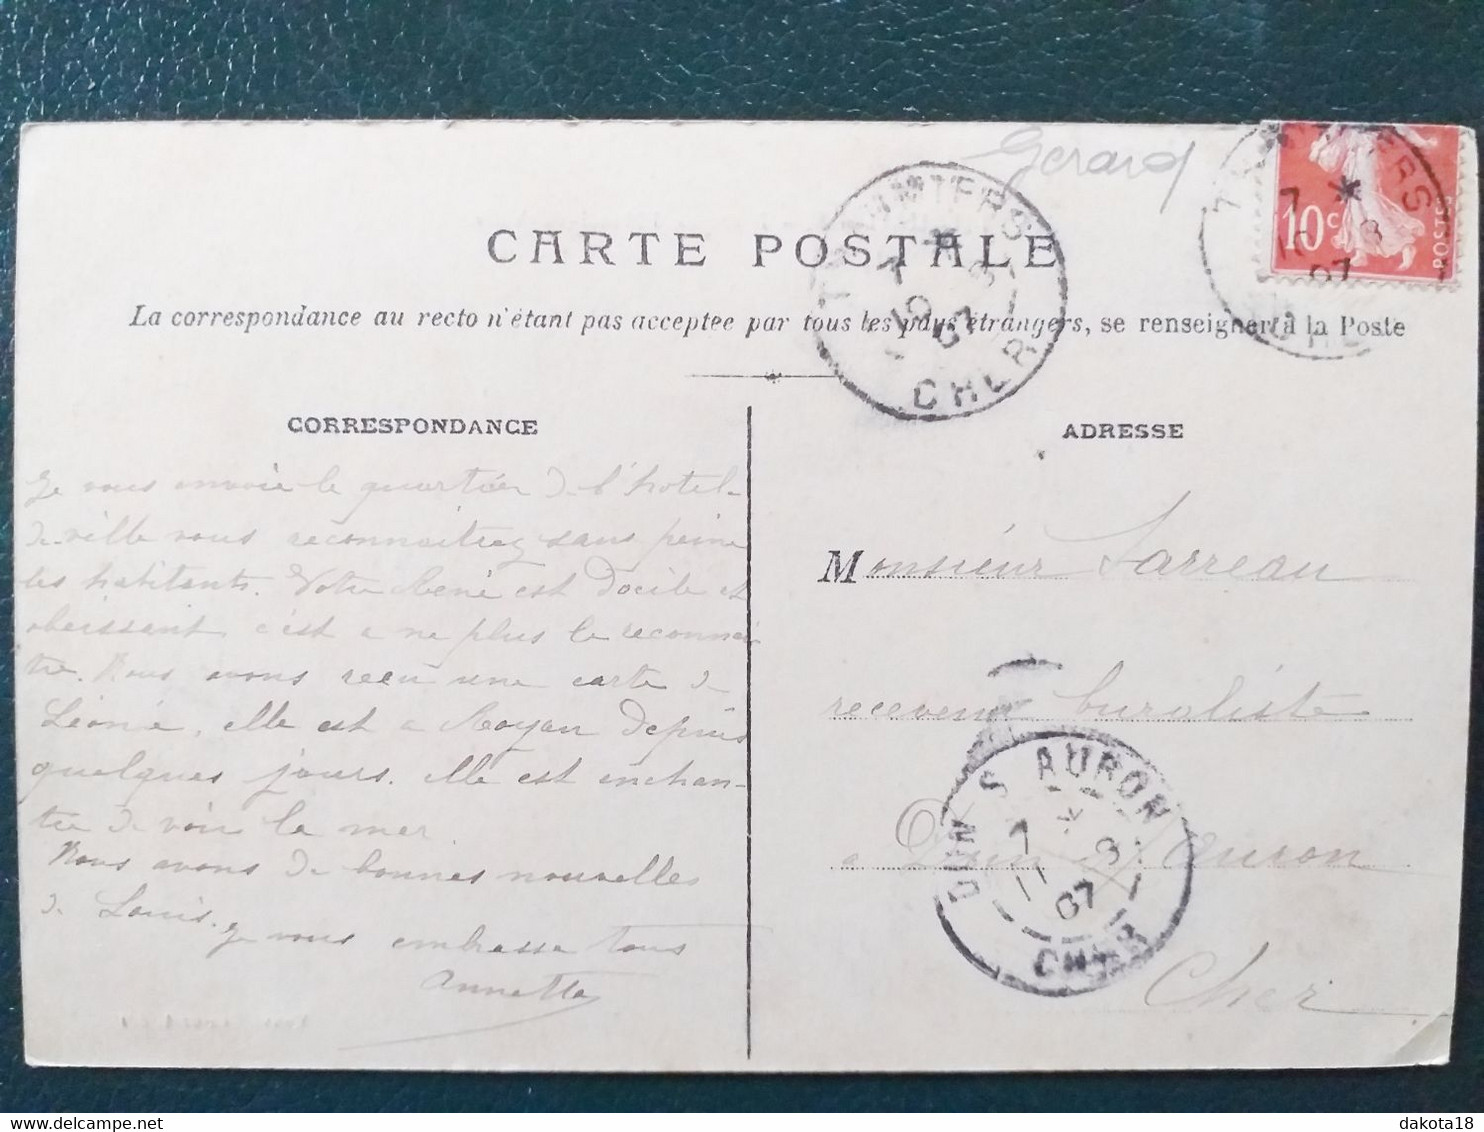 Gerard
CARTE POSTALE
La correspondance au recto n'étant pas acceptée par tous les pays étrangers, se renseigner à la Poste
10c
POSTES
7 * 8
11
07
CHER
7 * 8
10
07
CHER
CORRESPONDANCE
Je vous envoie le quartier de l'hotel-
de-ville vous reconnaitrez sans peine
les habitants. Votre René est docile et
obeissant c'est a ne plus le reconnai
tre. Nous avons reçu une carte de
Léonie, elle est a Royan depuis
quelques jours. elle est enchan-
tée de voir la mer.
Nous avons de bonnes nouvelles
de Louis.
Je vous embrasse tous
Annette
ADRESSE
Monsieur Sarreau
receveur buraliste
a Dun s/ Auron
Cher
DUN S AURON
7 * 8
11
07
CHER
delcampe.net
dakota18